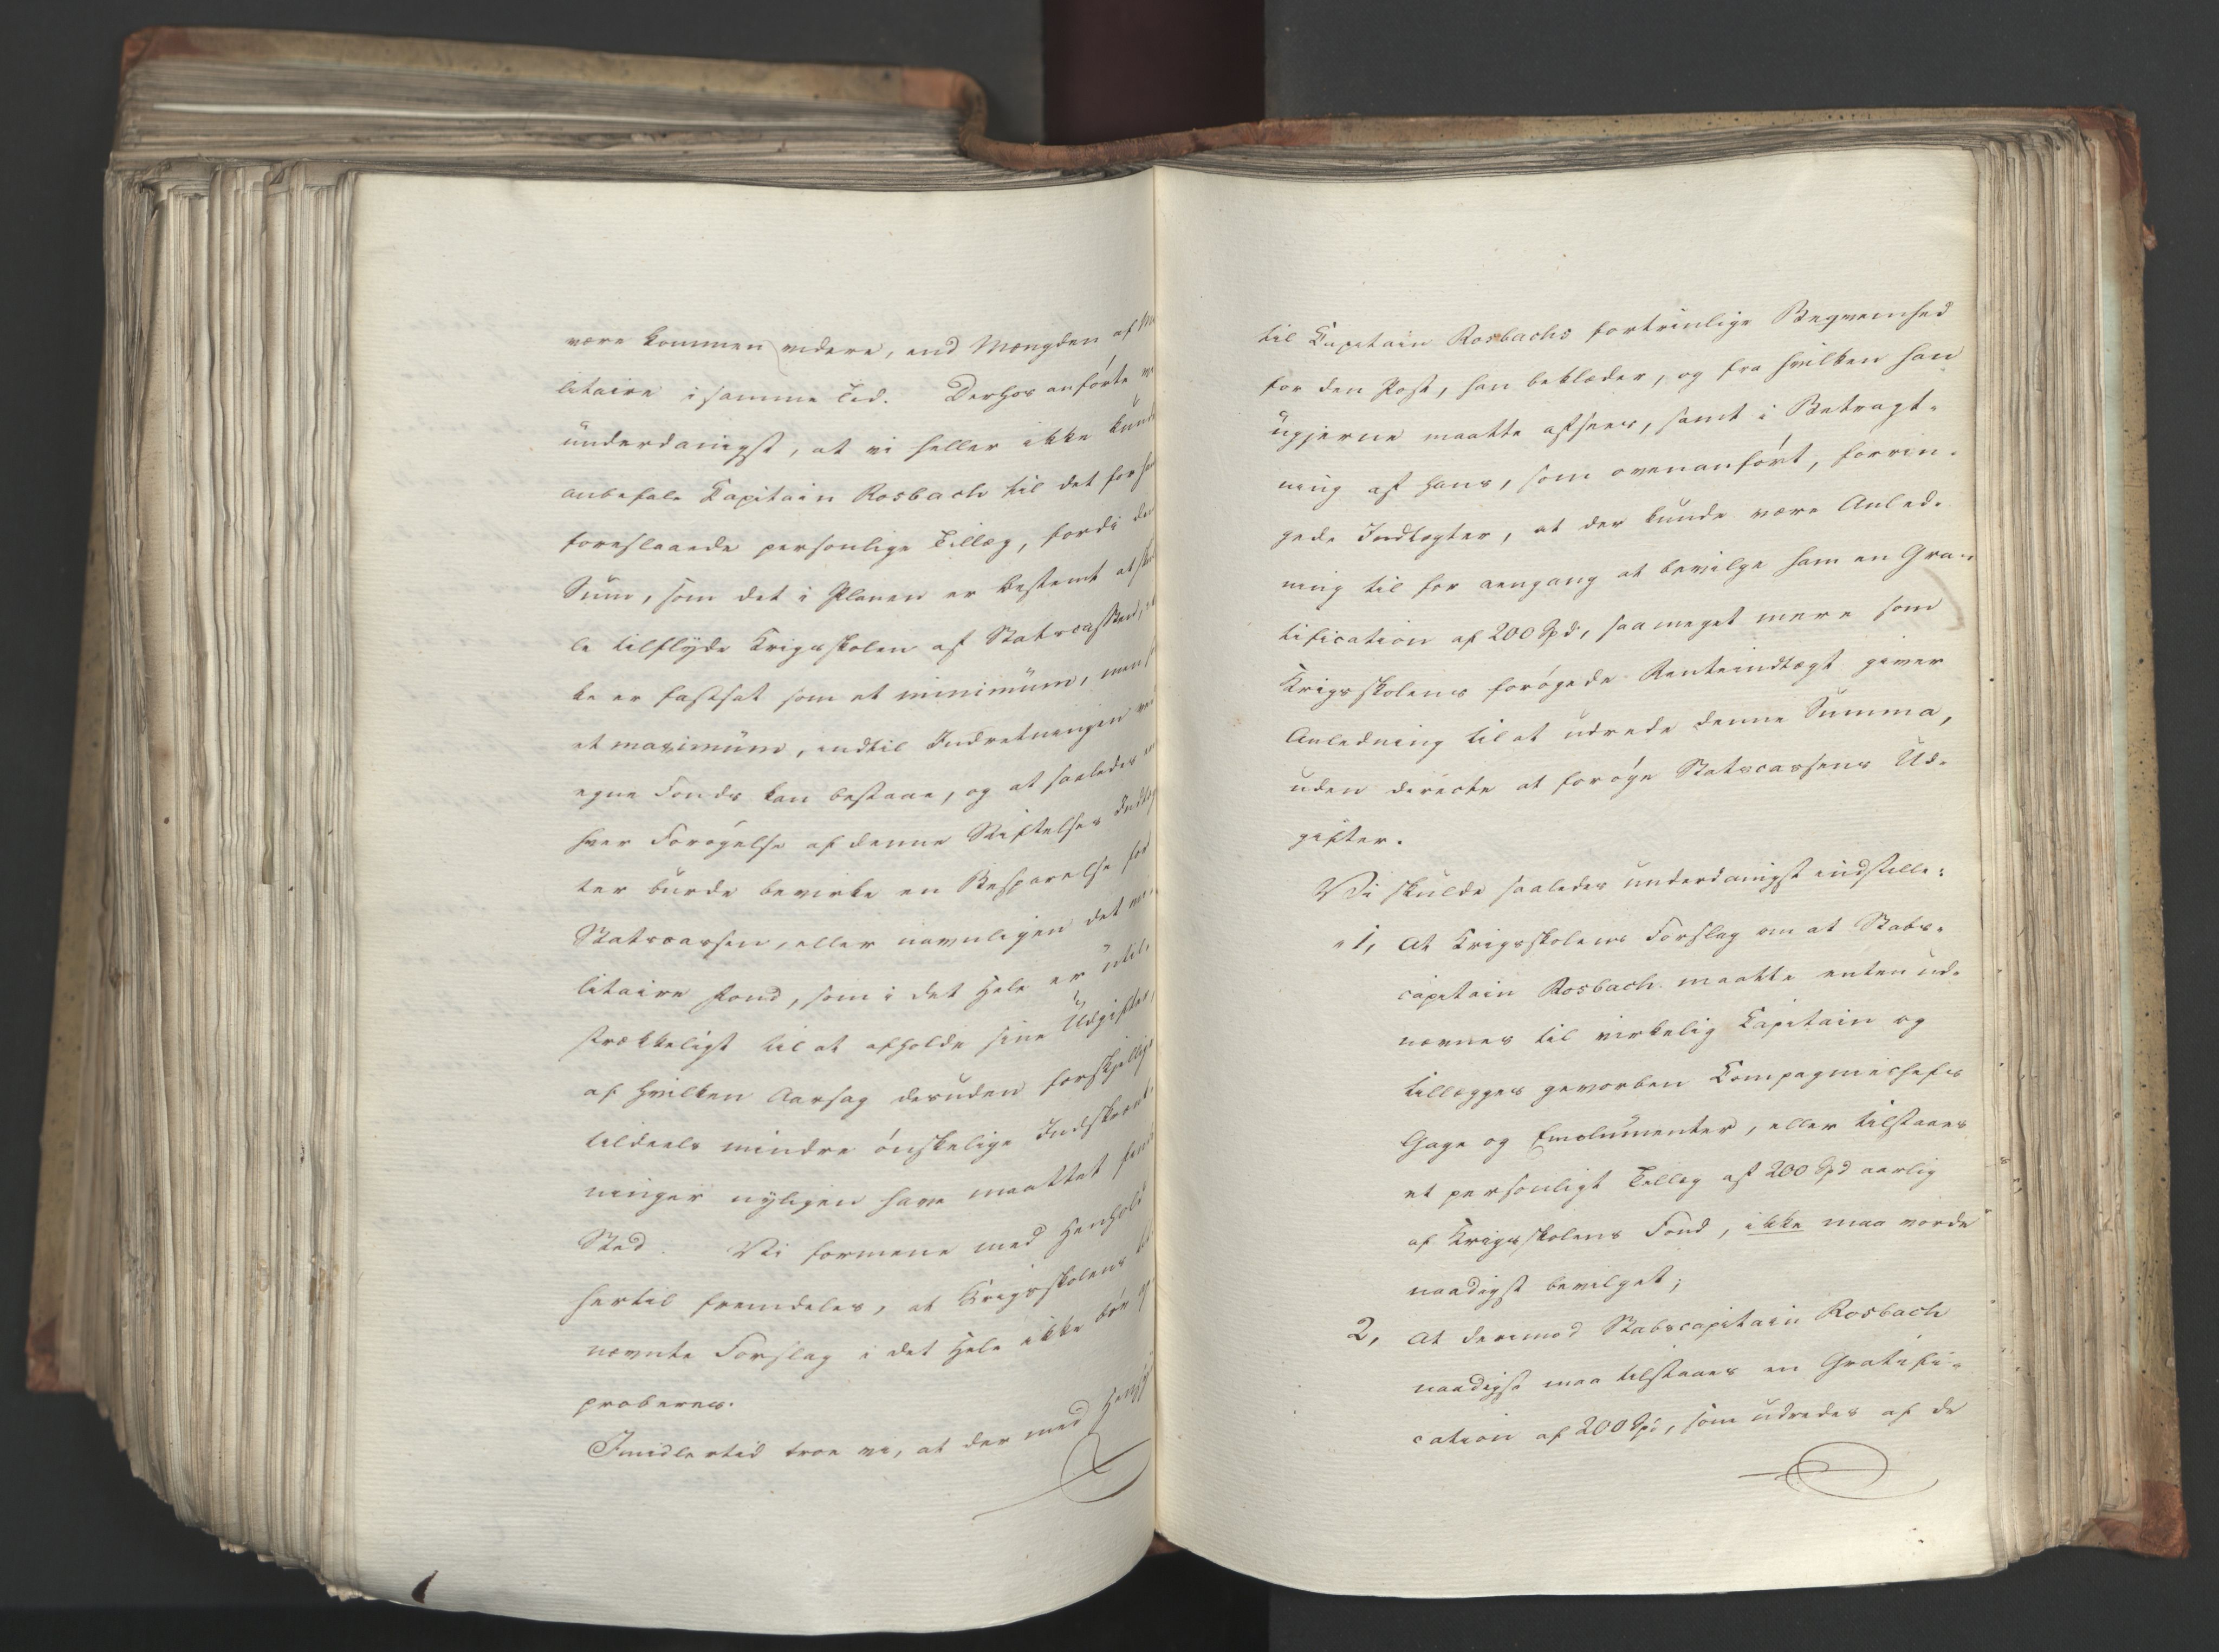 være kommen videre, end Mængden af Mi
litaire i samme Tid. Derhos anførte vi
underdanigst, at vi heller ikke kunde
anbefale Capitain Rosbach til det for ham
foreslaaede personlige Tillæg, fordi den
Sum, som det i Planen er bestemt at skul
le tilflyde Krigsskolen af Statscassen, ik
ke er fastsat som et minimum, men som
et maximum, indtil Indretningen ved
egne Fonds kan bestaae, og at saaledes en
hver Forøgelse af denne Stiftelses Indtæg
ter burde bevirke en Besparelse for
Statscassen, eller navnligen det mi
litaire Fond, som i det Hele er util
strækkeligt til at afholde sine Udgifter,
af hvilken Aarsag desuden forskjellige
tildeels mindre ønskelige Indskrænk
ninger nyligen have maattet finde
Sted. Vi formene med Henhold
hertil fremdeles, at Krigsskolens
nævnte Forslag i det Hele ikke bør ap
proberes.
Imidlertid troe vi, at der med Hensyn
til Capitain Rosbachs fortrinlige Beqvemhed
for den Post, han beklæder, og fra hvilken han
ugjerne maatte afsees, samt i Betragt-
ning af hans, som ovenanført, forrin-
gede Indtægter, at der kunde være Anled-
ning til for eengang at bevilge ham en Gra-
tification af 200 Spd, saameget mere som
Krigsskolens forøgede Renteindtægt giver
Anledning til at udrede denne Summa,
uden directe at forøge Statscassens Ud-
gifter.
Vi skulde saaledes underdanigst indstille:
"1, At Krigsskolens Forslag om at Stabs-
capitain Rosbach maatte enten ud-
nævnes til virkelig Capitain og
tillægges gevorben Compagniechefs
Gage og Emolumenter, eller tilstaaes
et personligt Tillæg af 200 Spd aarlig
af Krigsskolens Fond, ikke maa vorde
naadigst bevilget;
2, At derimod Stabscapitain Rosbach
naadigst maa tilstaaes en Gratifi-
cation af 200 Spd, som udredes af de